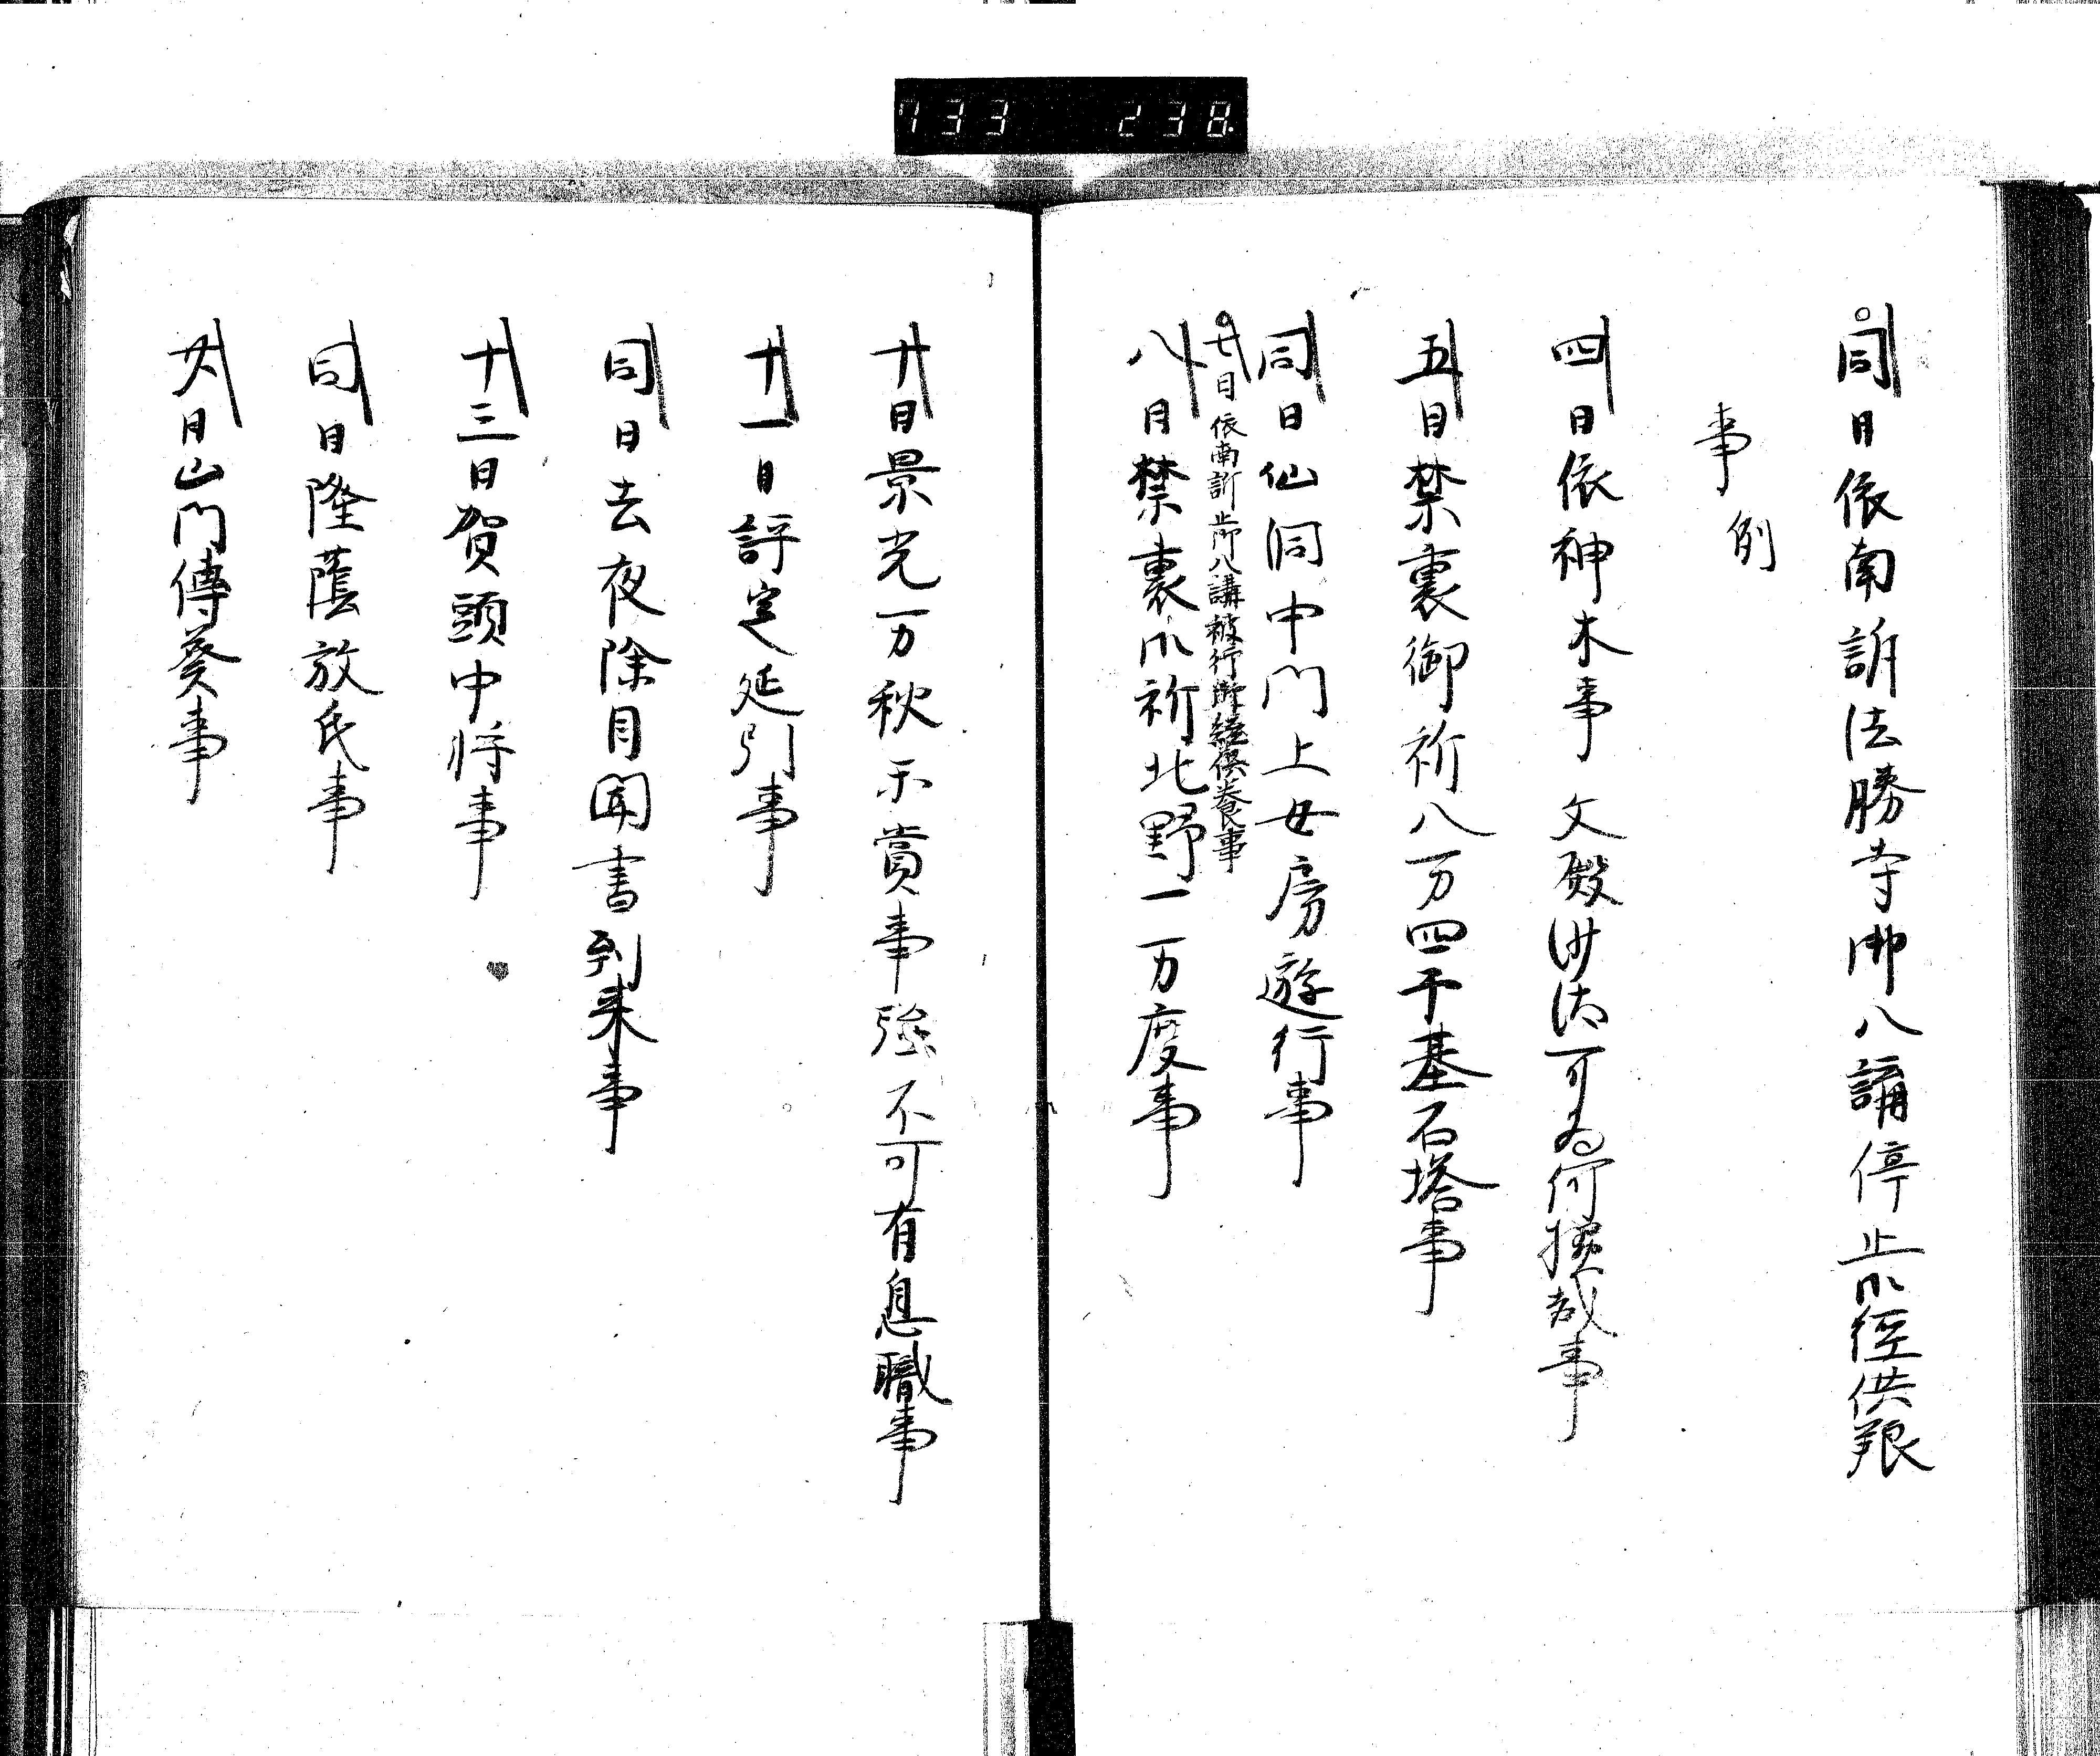 733 238.
同日依南訴法勝寺御八講停止御経供養
事 例
四日依神木事文殿沙汰可為何様哉事
五日禁裏御祈八万四千基石塔事
同日仙洞中門上女房遊行事
廿日依南訴止御八講被行御経供養事
八日禁裏御祈北野一万度事
廿日景光万秋示賞事強不可有息職事
十一日評定延引事
同日去夜除目聞書到来事
十三日賀頭中将事
同日隆蔭放氏事
日山門傳葵事